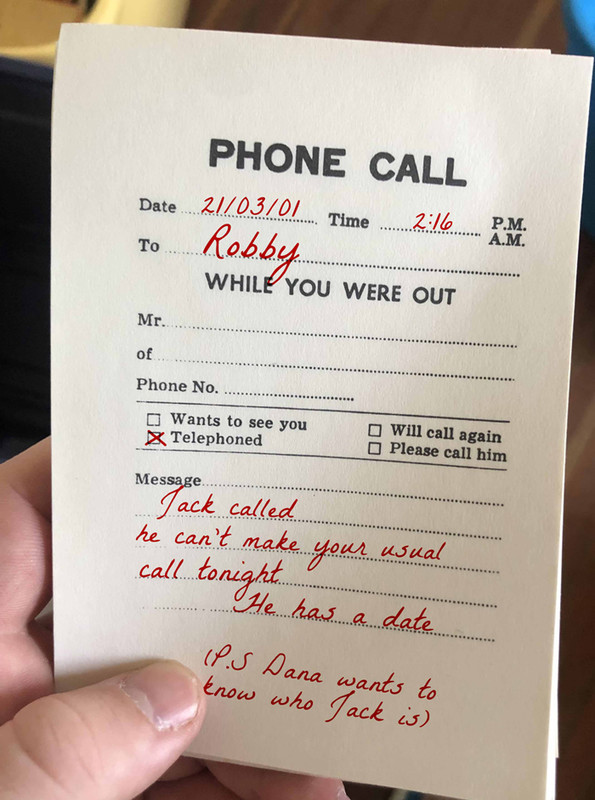 PHONE CALL
Date 21/03/01 Time 2:16 P.M.
A.M.
To Robby
WHILE YOU WERE OUT
Mr.
of
Phone No.
Wants to see you Will call again
Telephoned Please call him
Message
Jack called
he can't make your usual
call tonight
He has a date
(P.S Dana wants to
know who Jack is)